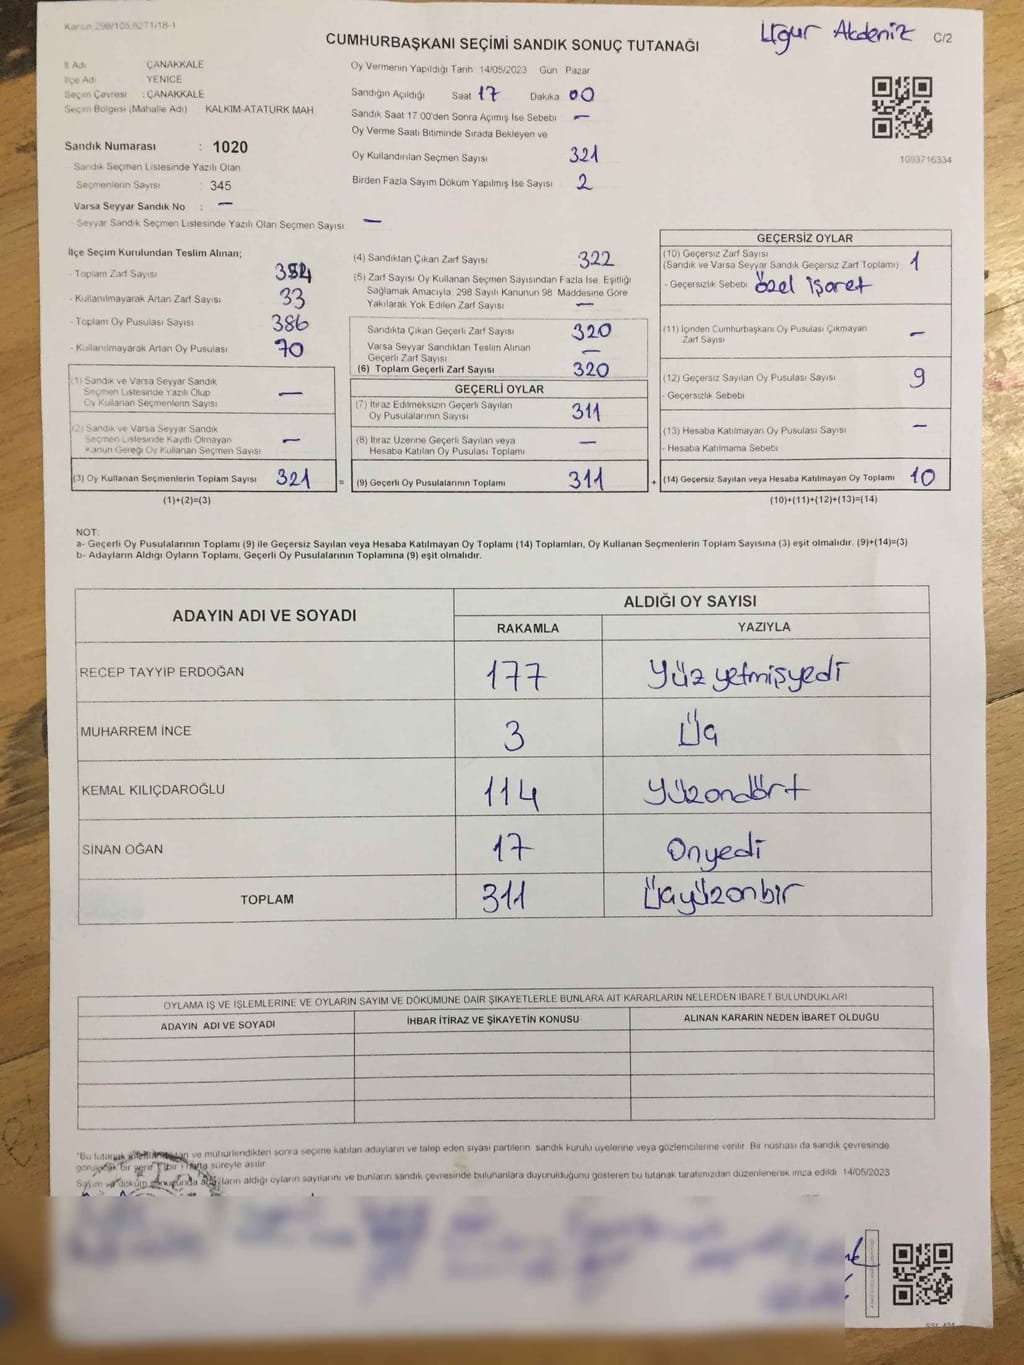 Kanun 298/105,6271/18-1
Uğur Akdeniz C/2
CUMHURBAŞKANI SEÇİMİ SANDIK SONUÇ TUTANAĞI
İl Adı : ÇANAKKALE
İlçe Adı : YENİCE
Seçim Çevresi : ÇANAKKALE
Seçim Bölgesi (Mahalle Adı) KALKIM-ATATÜRK MAH
Sandık Numarası : 1020
Sandık Seçmen Listesinde Yazılı Olan
Seçmenlerin Sayısı : 345
Varsa Seyyar Sandık No : —
Seyyar Sandık Seçmen Listesinde Yazılı Olan Seçmen Sayısı —
Oy Vermenin Yapıldığı Tarih 14/05/2023 Gün Pazar
Sandığın Açıldığı Saat 17 Dakika 00
Sandık Saat 17 00'den Sonra Açımış İse Sebebi —
Oy Verme Saati Bitiminde Sırada Bekleyen ve
Oy Kullandırılan Seçmen Sayısı 321
Birden Fazla Sayım Döküm Yapılmış İse Sayısı 2
1093716334
İlçe Seçim Kurulundan Teslim Alınan;
- Toplam Zarf Sayısı
- Kullanılmayarak Artan Zarf Sayısı 33
- Toplam Oy Pusulası Sayısı 386
- Kullanılmayarak Artan Oy Pusulası 70
(1) Sandık ve Varsa Seyyar Sandık
Seçmen Listesinde Yazılı Olup
Oy Kullanan Seçmenlerin Sayısı —
(2) Sandık ve Varsa Seyyar Sandık
Seçmen Listesinde Kayıtlı Olmayan
Kanun Gereği Oy Kullanan Seçmen Sayısı —
(3) Oy Kullanan Seçmenlerin Toplam Sayısı 321
(1)+(2)=(3)
(4) Sandıktan Çıkan Zarf Sayısı 322
(5) Zarf Sayısı Oy Kullanan Seçmen Sayısından Fazla İse, Eşitliği
Sağlamak Amacıyla, 298 Sayılı Kanunun 98 Maddesine Göre
Yakılarak Yok Edilen Zarf Sayısı —
Sandıkta Çıkan Geçerli Zarf Sayısı 320
Varsa Seyyar Sandıktan Teslim Alınan
Geçerli Zarf Sayısı —
(6) Toplam Geçerli Zarf Sayısı 320
GEÇERLİ OYLAR
(7) İtiraz Edilmeksizin Geçerli Sayılan
Oy Pusulalarının Sayısı 311
(8) İtiraz Üzerine Geçerli Sayılan veya
Hesaba Katılan Oy Pusulası Toplamı —
= (9) Geçerli Oy Pusulalarının Toplamı 311
GEÇERSİZ OYLAR
(10) Geçersiz Zarf Sayısı
(Sandık ve Varsa Seyyar Sandık Geçersiz Zarf Toplamı) 1
- Geçersizlik Sebebi Özel işaret
(11) İçinden Cumhurbaşkanı Oy Pusulası Çıkmayan
Zarf Sayısı —
(12) Geçersiz Sayılan Oy Pusulası Sayısı 9
- Geçersizlik Sebebi
(13) Hesaba Katılmayan Oy Pusulası Sayısı —
- Hesaba Katılmama Sebebi
+ (14) Geçersiz Sayılan veya Hesaba Katılmayan Oy Toplamı 10
(10)+(11)+(12)+(13)=(14)
NOT:
a- Geçerli Oy Pusulalarının Toplamı (9) ile Geçersiz Sayılan veya Hesaba Katılmayan Oy Toplamı (14) Toplamları, Oy Kullanan Seçmenlerin Toplam Sayısına (3) eşit olmalıdır. (9)+(14)=(3)
b- Adayların Aldığı Oyların Toplamı, Geçerli Oy Pusulalarının Toplamına (9) eşit olmalıdır.
ADAYIN ADI VE SOYADI ALDIĞI OY SAYISI
RAKAMLA YAZIYLA
RECEP TAYYIP ERDOĞAN 177 Yüz yetmişyedi
MUHARREM İNCE 3 Üç
KEMAL KILIÇDAROĞLU 114 Yüzondört
SİNAN OĞAN 17 Onyedi
TOPLAM 311 Üçyüzonbir
OYLAMA İŞ VE İŞLEMLERİNE VE OYLARIN SAYIM VE DÖKÜMÜNE DAİR ŞİKAYETLERLE BUNLARA AİT KARARLARIN NELERDEN İBARET BULUNDUKLARI
ADAYIN ADI VE SOYADI İHBAR İTİRAZ VE ŞİKAYETİN KONUSU ALINAN KARARIN NEDEN İBARET OLDUĞU
"Bu tutanak ve mühürlendikten sonra seçime katılan adayların ve talep eden siyasi partilerin sandık kurulu üyelerine veya gözlemcilerine verilir. Bir nüshası da sandık çevresinde
bir yere bir hafta süreyle asılır
Sayım ve döküm sonucunda adayların aldığı oyların sayılarını ve bunların sandık çevresinde bulunanlara duyurulduğunu gösteren bu tutanak tarafımızdan düzenlenerek imza edildi 14/05/2023